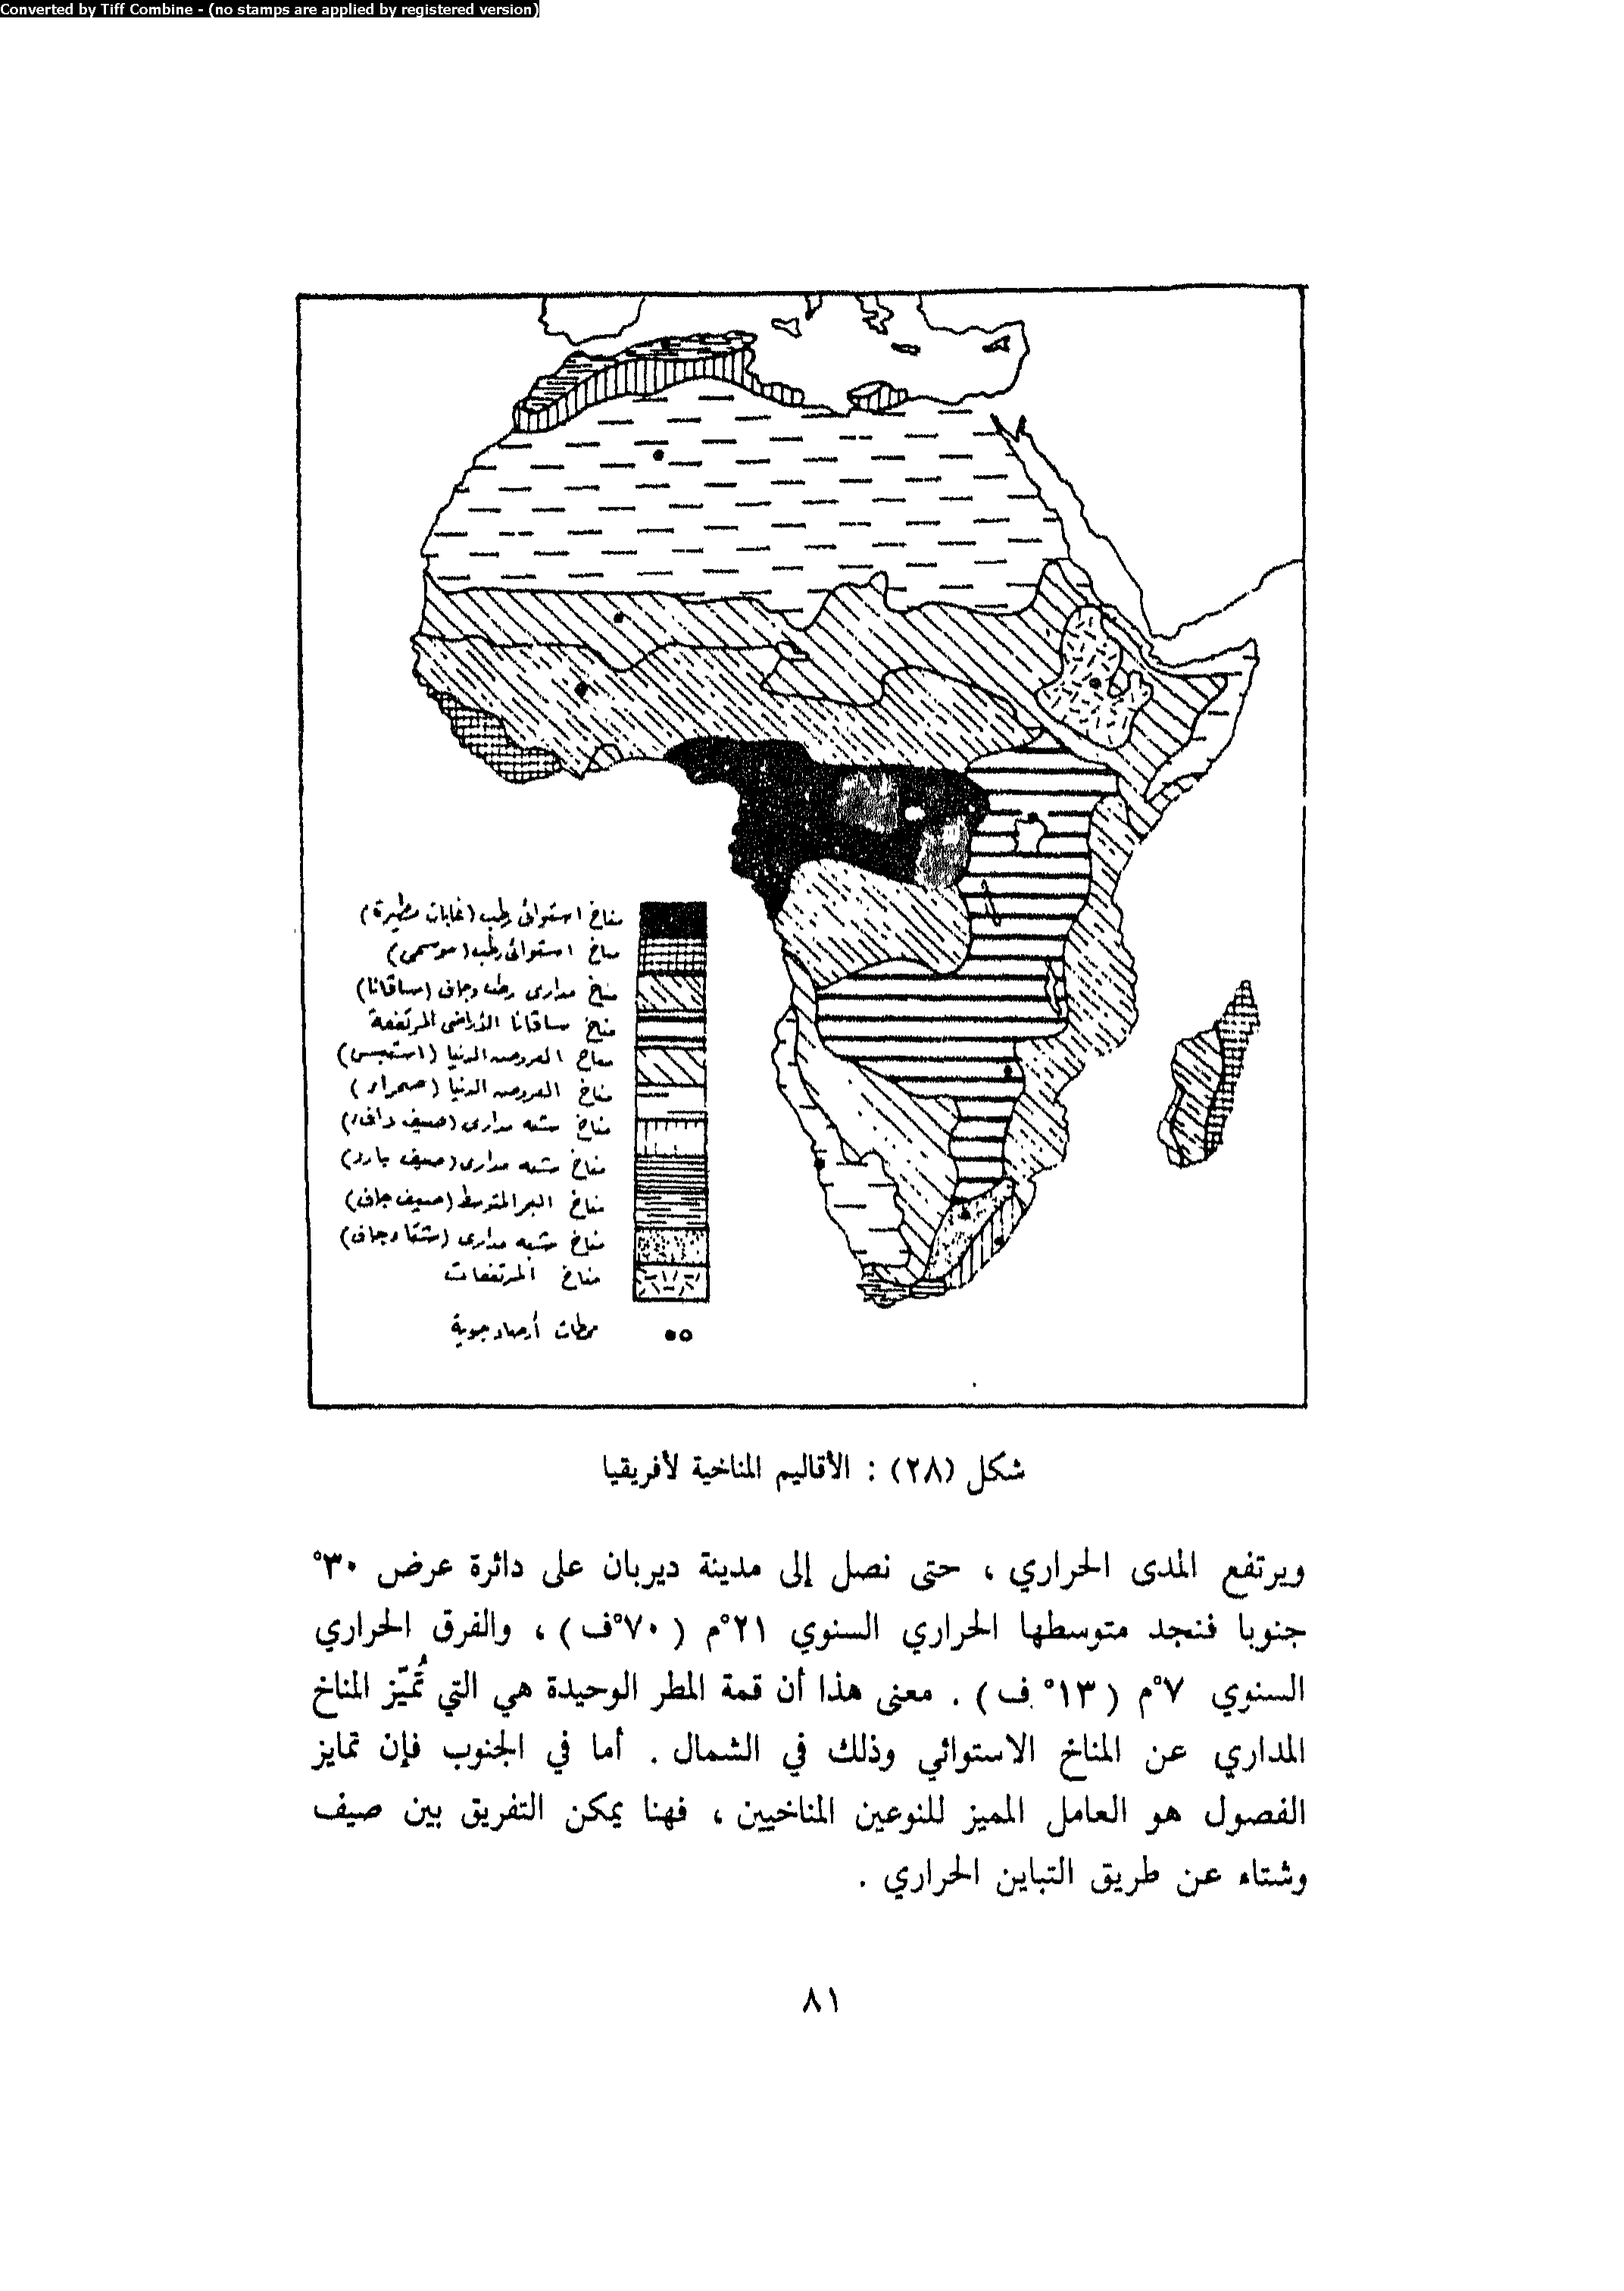 Converted by Tiff Combine - (no stamps are applied by registered version)
مناخ استوائى رطب (غابات مطيرة)
مناخ استوائى رطب (موسمى)
مناخ مدارى رطب وجاف (ساڤانا)
مناخ ساڤانا الأراضى المرتفعة
مناخ العروض الدنيا (استبس)
مناخ العروض الدنيا (صحراء)
مناخ شبه مدارى (صيف دافىء)
مناخ شبه مدارى (صيف بارد)
مناخ البحر المتوسط (صيف جاف)
مناخ شبه مدارى (شتاء جاف)
مناخ المرتفعات
محطات أرصاد جوية
شكل (٢٨) : الأقاليم المناخية لأفريقيا
ويرتفع المدى الحراري ، حتى نصل إلى مدينة ديربان على دائرة عرض ٣٠°
جنوبا فنجد متوسطها الحراري السنوي ٢١°م ( ٧٠°ف ) ، والفرق الحراري
السنوي ٧°م ( ١٣°ف ) . معنى هذا أن قمة المطر الوحيدة هي التي تُميّز المناخ
المداري عن المناخ الاستوائي وذلك في الشمال . أما في الجنوب فإن تمايز
الفصول هو العامل المميز للنوعين المناخيين ، فهنا يمكن التفريق بين صيف
وشتاء عن طريق التباين الحراري .
٨١